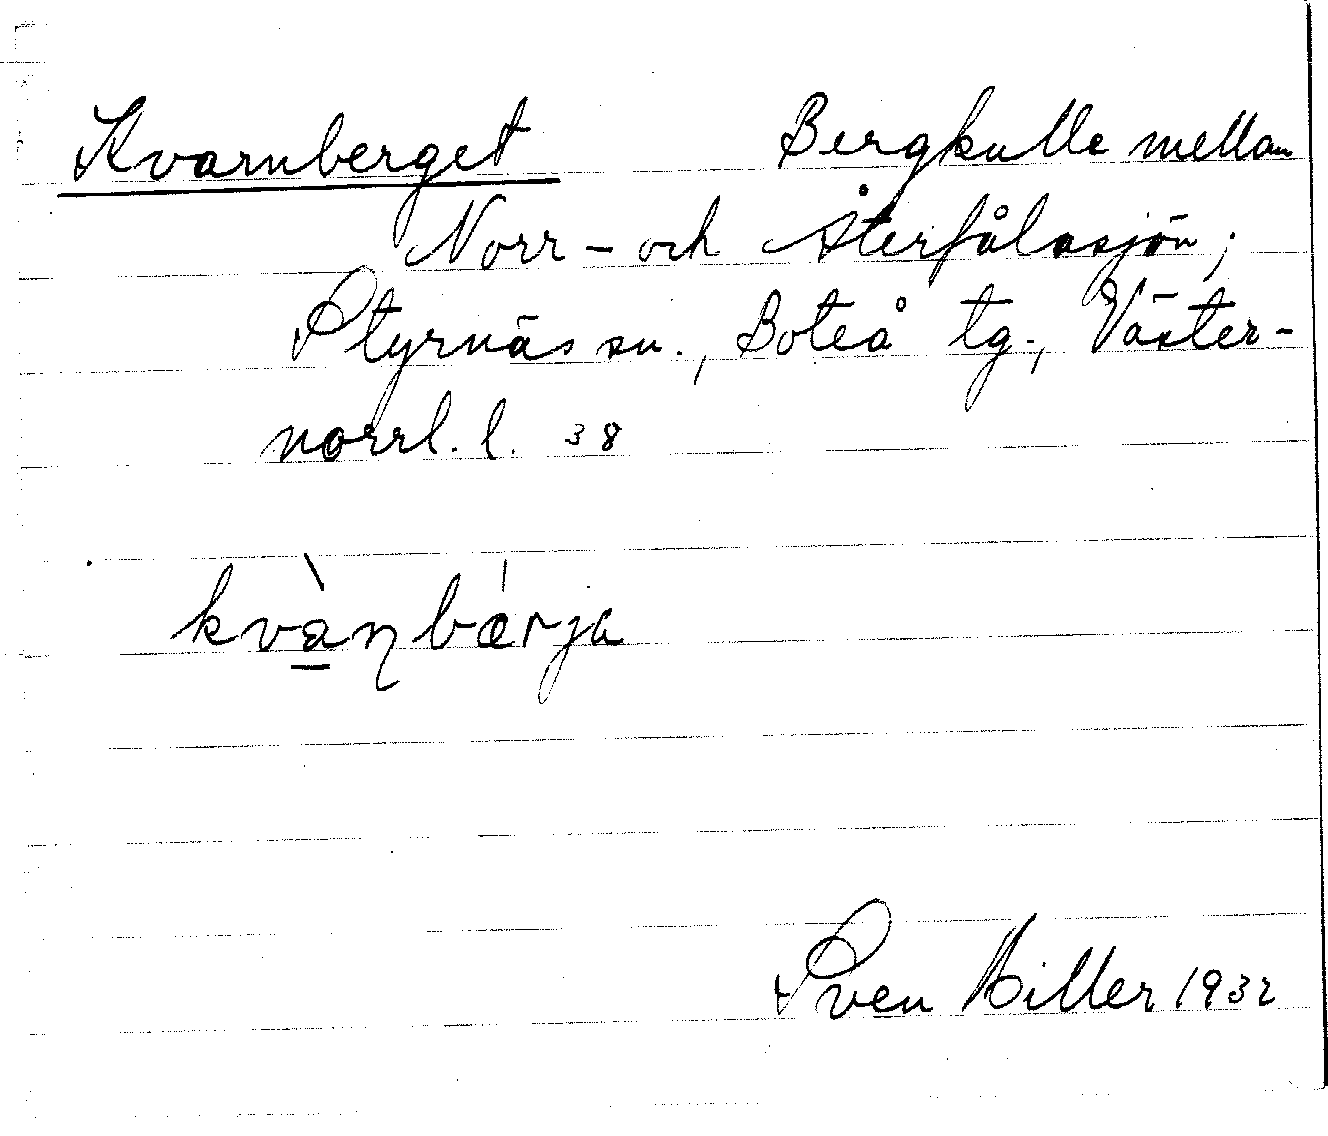 Kvarnberget Bergkulle mellan
Norr- och Återfålasjön;
Styrnäs sn., Boteå tg., Väster-
norrl. l. 38
kvàn̥bærja
Sven Hiller 1932